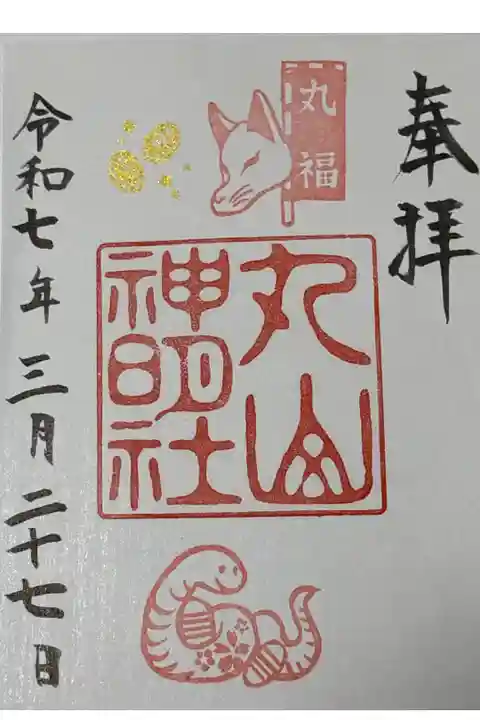 奉拝
丸福
丸山
神明社
令和七年三月二十七日